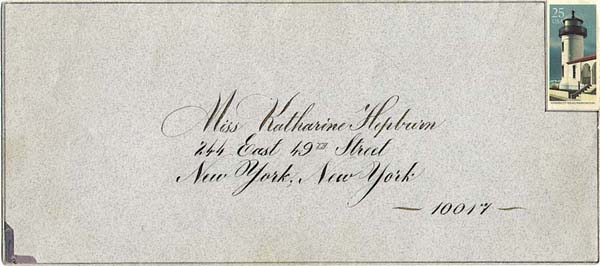 25
USA
Miss Katharine Hepburn
244 East 49TH Street
New York, New York
— 10017 —